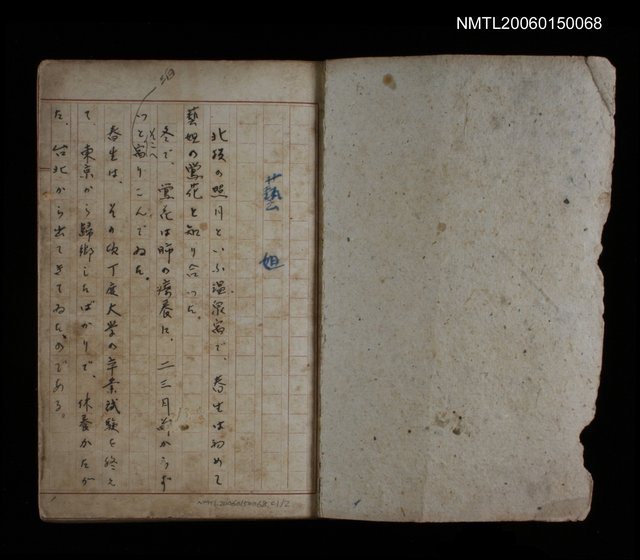 NMTL20060150068
藝 妲
北投の照月といふ温泉宿で、春生は初めて
藝妲の鶯花と知り合つた。
冬で、鶯花は肺の療養に、二三月前からず
そこへ
つと宿りこんでゐた。
春生は、その頃丁度大学の卒業試験を終え
て、東京から歸郷したばかりで、休養かたが
た、台北から出てきてゐたのである。
NMTL20060150068